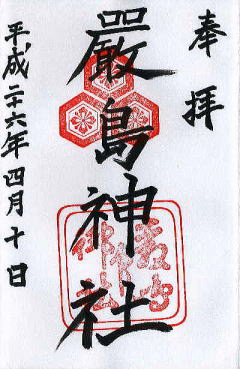 奉拝
嚴島神社
平成二十六年四月十日